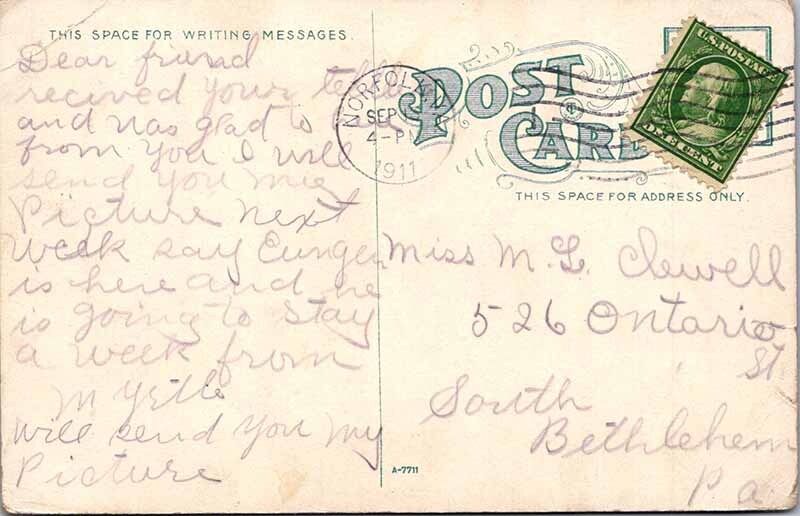 THIS SPACE FOR WRITING MESSAGES.
Dear friend
recived your
and was glad to
from you I will
send you mie
Picture next
Week say Eungen
is here and he
is going to stay
a week from
will send you my
Picture
NORFOLK
SEP
4-P
1911
POST
CARD
U.S. POSTAGE
ONE CENT
THIS SPACE FOR ADDRESS ONLY.
Miss M. L. Clewell
526 Ontario
St
South
Bethlehem
Pa.
A-7711